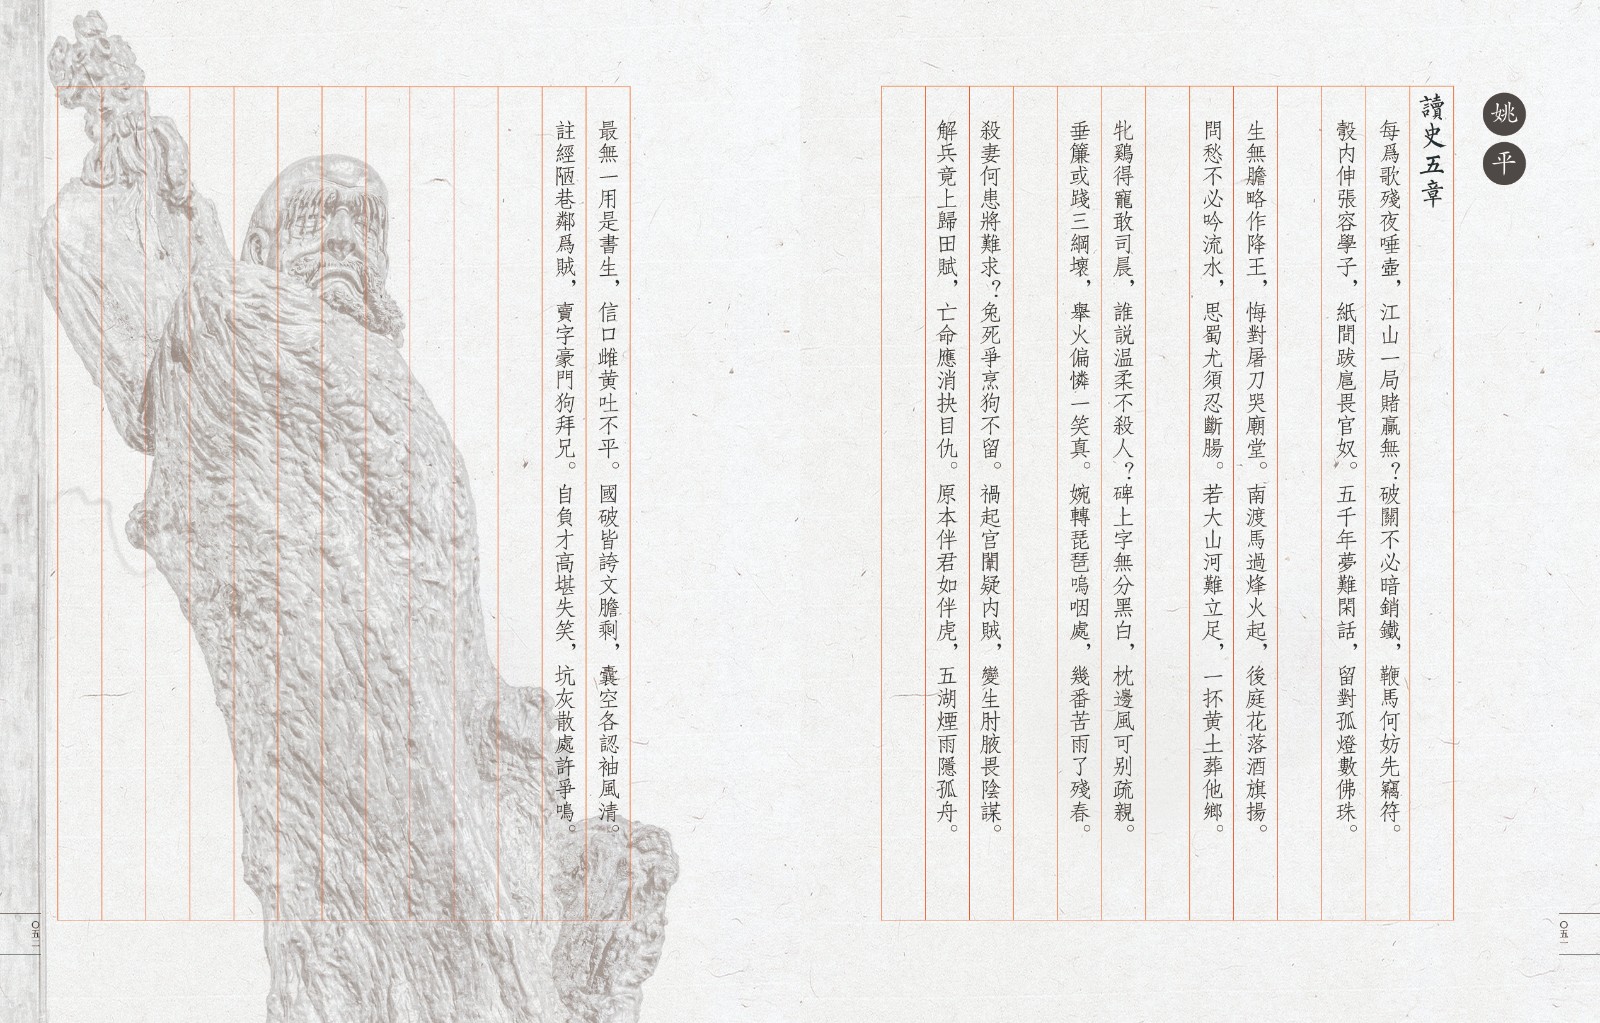 姚平
讀史五章
每爲歌殘夜唾壺，江山一局賭贏無？破關不必暗銷鐵，鞭馬何妨先竊符。
彀内伸張容學子，紙間跋扈畏官奴。五千年夢難閑話，留對孤燈數佛珠。
生無膽略作降王，悔對屠刀哭廟堂。南渡馬過烽火起，後庭花落酒旗揚。
問愁不必吟流水，思蜀尤須忍斷腸。若大山河難立足，一抔黄土葬他鄉。
牝鷄得寵敢司晨，誰説温柔不殺人？碑上字無分黑白，枕邊風可别疏親。
垂簾或踐三綱壞，舉火偏憐一笑真。婉轉琵琶嗚咽處，幾番苦雨了殘春。
殺妻何患將難求？兔死爭烹狗不留。禍起宫闈疑内賊，變生肘腋畏陰謀。
解兵竟上歸田賦，亡命應消抉目仇。原本伴君如伴虎，五湖煙雨隱孤舟。
〇五一
最無一用是書生，信口雌黄吐不平。國破皆誇文膽剩，囊空各認袖風清。
註經陋巷鄰爲賊，賣字豪門狗拜兄。自負才高堪失笑，坑灰散處許爭鳴。
〇五二